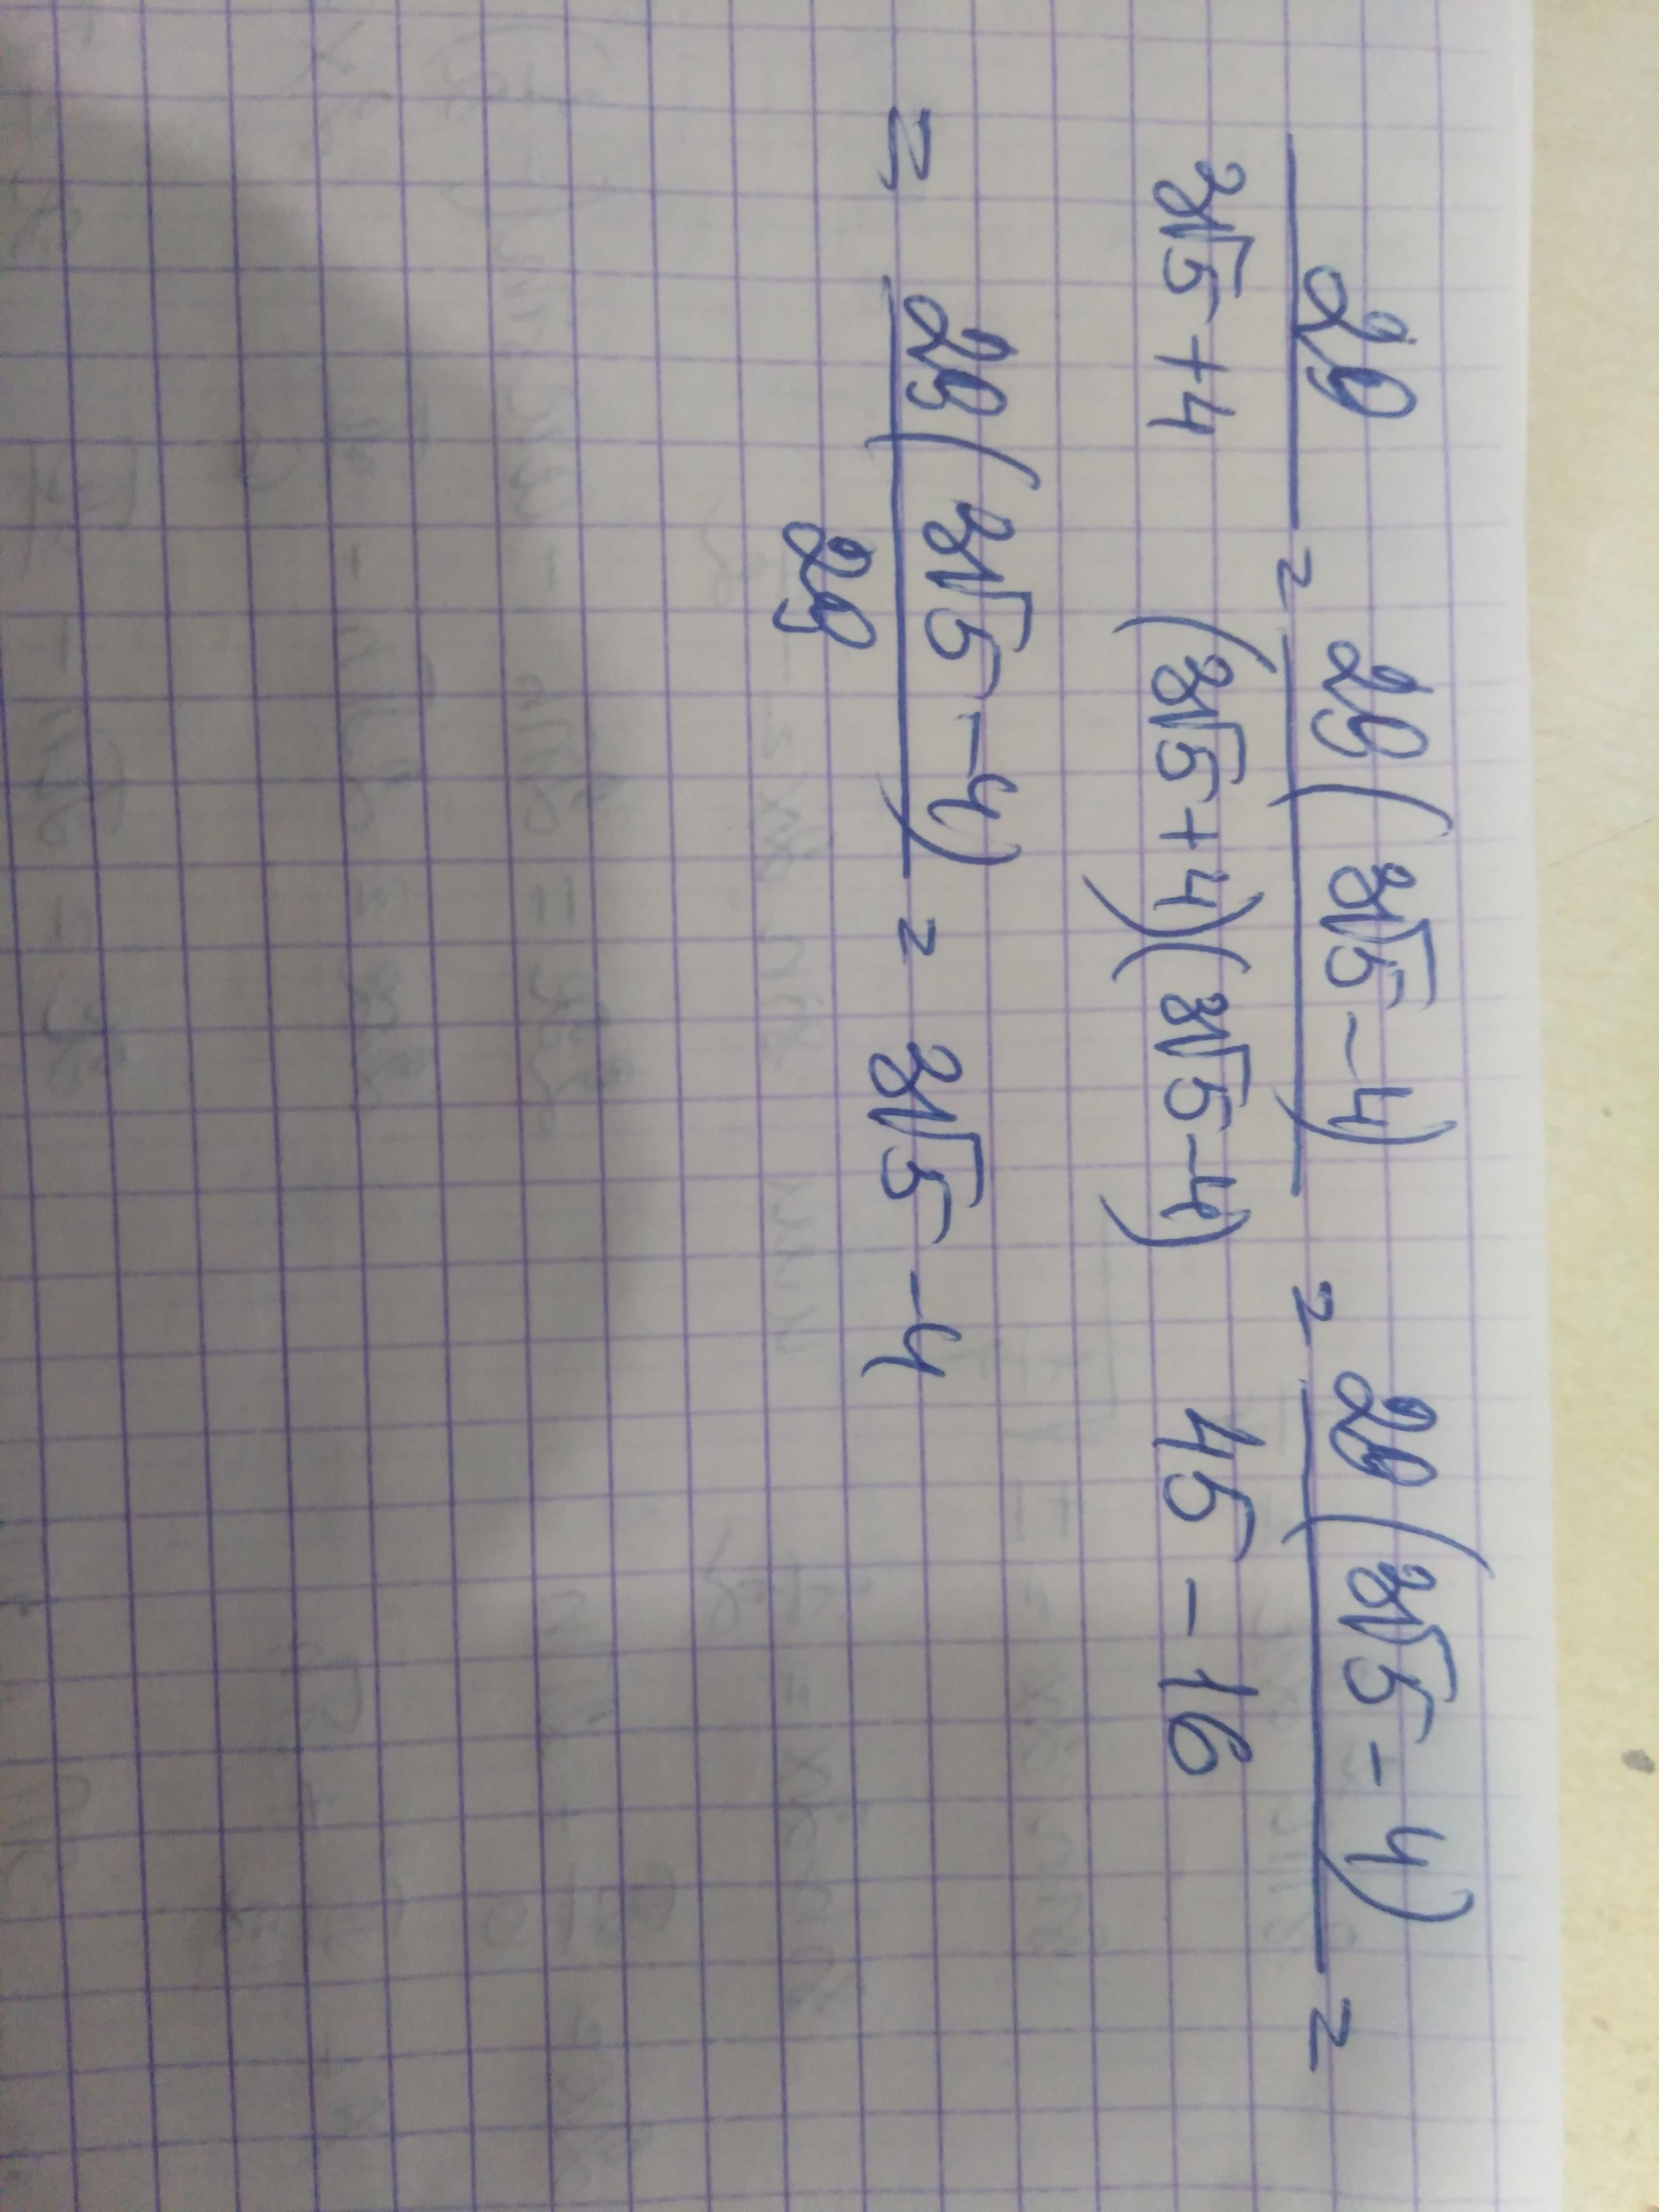 29/(3√5+4) = 29(3√5-4)/((3√5+4)(3√5-4)) = 29(3√5-4)/(45-16) =
= 29(3√5-4)/29 = 3√5-4